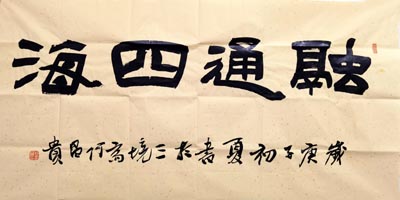 融通四海
歲庚子初夏書於三境何昌貴